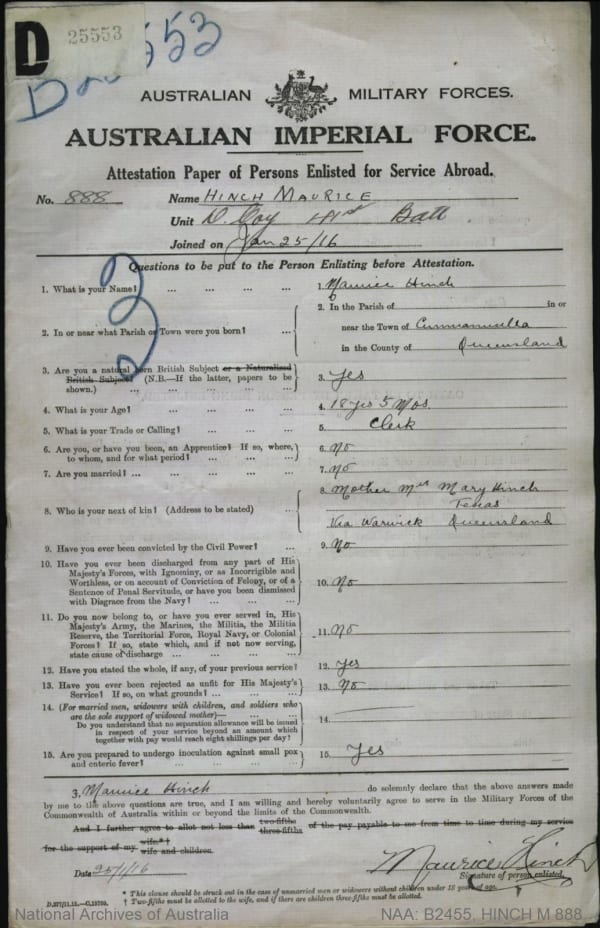 D
25553
D25553
AUSTRALIAN MILITARY FORCES.
AUSTRALIAN IMPERIAL FORCE.
Attestation Paper of Persons Enlisted for Service Abroad.
No. 888 Name HINCH MAURICE
Unit D. Coy 41st Batt
Joined on Jan 25/16
Questions to be put to the Person Enlisting before Attestation.
1. What is your Name? ... ... ... ... 1. Maurice Hinch
2. In or near what Parish or Town were you born? ... 2. In the Parish of in or
near the Town of Cunnamulla
in the County of Queensland
3. Are you a natural born British Subject or a Naturalised
British Subject? (N.B.—If the latter, papers to be
shown.) ... ... ... ... 3. Yes
4. What is your Age? ... ... ... ... 4. 18 yrs 5 Mos.
5. What is your Trade or Calling? ... ... ... 5. Clerk
6. Are you, or have you been, an Apprentice? If so, where,
to whom, and for what period? ... ... ... 6. No
7. Are you married? ... ... ... ... 7. No
8. Who is your next of kin? (Address to be stated) ... 8. Mother Mrs Mary Hinch
Texas
Via Warwick Queensland
9. Have you ever been convicted by the Civil Power? ... 9. No
10. Have you ever been discharged from any part of His
Majesty's Forces, with Ignominy, or as Incorrigible and
Worthless, or on account of Conviction of Felony, or of a
Sentence of Penal Servitude, or have you been dismissed
with Disgrace from the Navy? ... ... ... 10. No
11. Do you now belong to, or have you ever served in, His
Majesty's Army, the Marines, the Militia, the Militia
Reserve, the Territorial Force, Royal Navy, or Colonial
Forces? If so, state which, and if not now serving,
state cause of discharge ... ... ... 11. No
12. Have you stated the whole, if any, of your previous service? 12. Yes
13. Have you ever been rejected as unfit for His Majesty's
Service? If so, on what grounds? ... ... ... 13. No
14. (For married men, widowers with children, and soldiers who
are the sole support of widowed mother)—
Do you understand that no separation allowance will be issued
in respect of your service beyond an amount which
together with pay would reach eight shillings per day? ... 14.
15. Are you prepared to undergo inoculation against small pox
and enteric fever? ... ... ... ... 15. Yes
3, Maurice Hinch do solemnly declare that the above answers made
by me to the above questions are true, and I am willing and hereby voluntarily agree to serve in the Military Forces of the
Commonwealth of Australia within or beyond the limits of the Commonwealth.
And I further agree to allot not less than two-fifths three-fifths of the pay payable to me from time to time during my service
for the support of my wife*† wife and children.
Date 25/1/16 Maurice Hinch
Signature of person enlisted.
* This clause should be struck out in the case of unmarried men or widowers without children under 18 years of age.
† Two-fifths must be allotted to the wife, and if there are children three-fifths must be allotted.
National Archives of Australia NAA: B2455, HINCH M 888